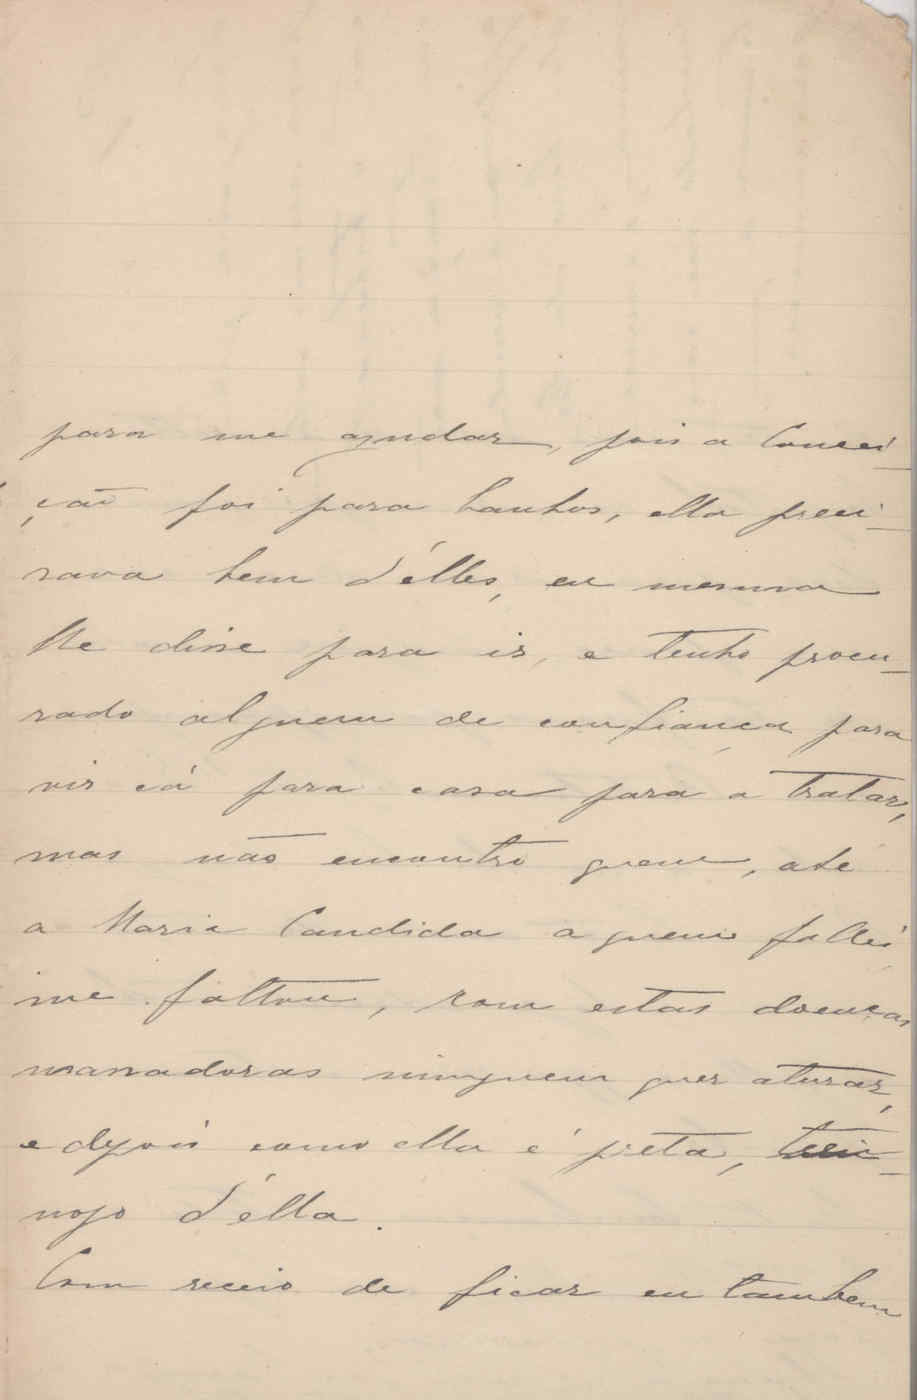 para me ajudar, pois a Concei-
ção foi para banhos, ella preci-
sava bem d'élles, eu mesma
lhe disse para ir, e tenho procu-
rado alguem de confiança para
vir cá para casa para a tratar,
mas não encontro quem, até
a Maria Candida a quem fallei
me faltou, com estas doenças
massadoras ninguem quer aturar,
e depois como ella é preta,
nojo d'élla.
Com receio de ficar eu tambem